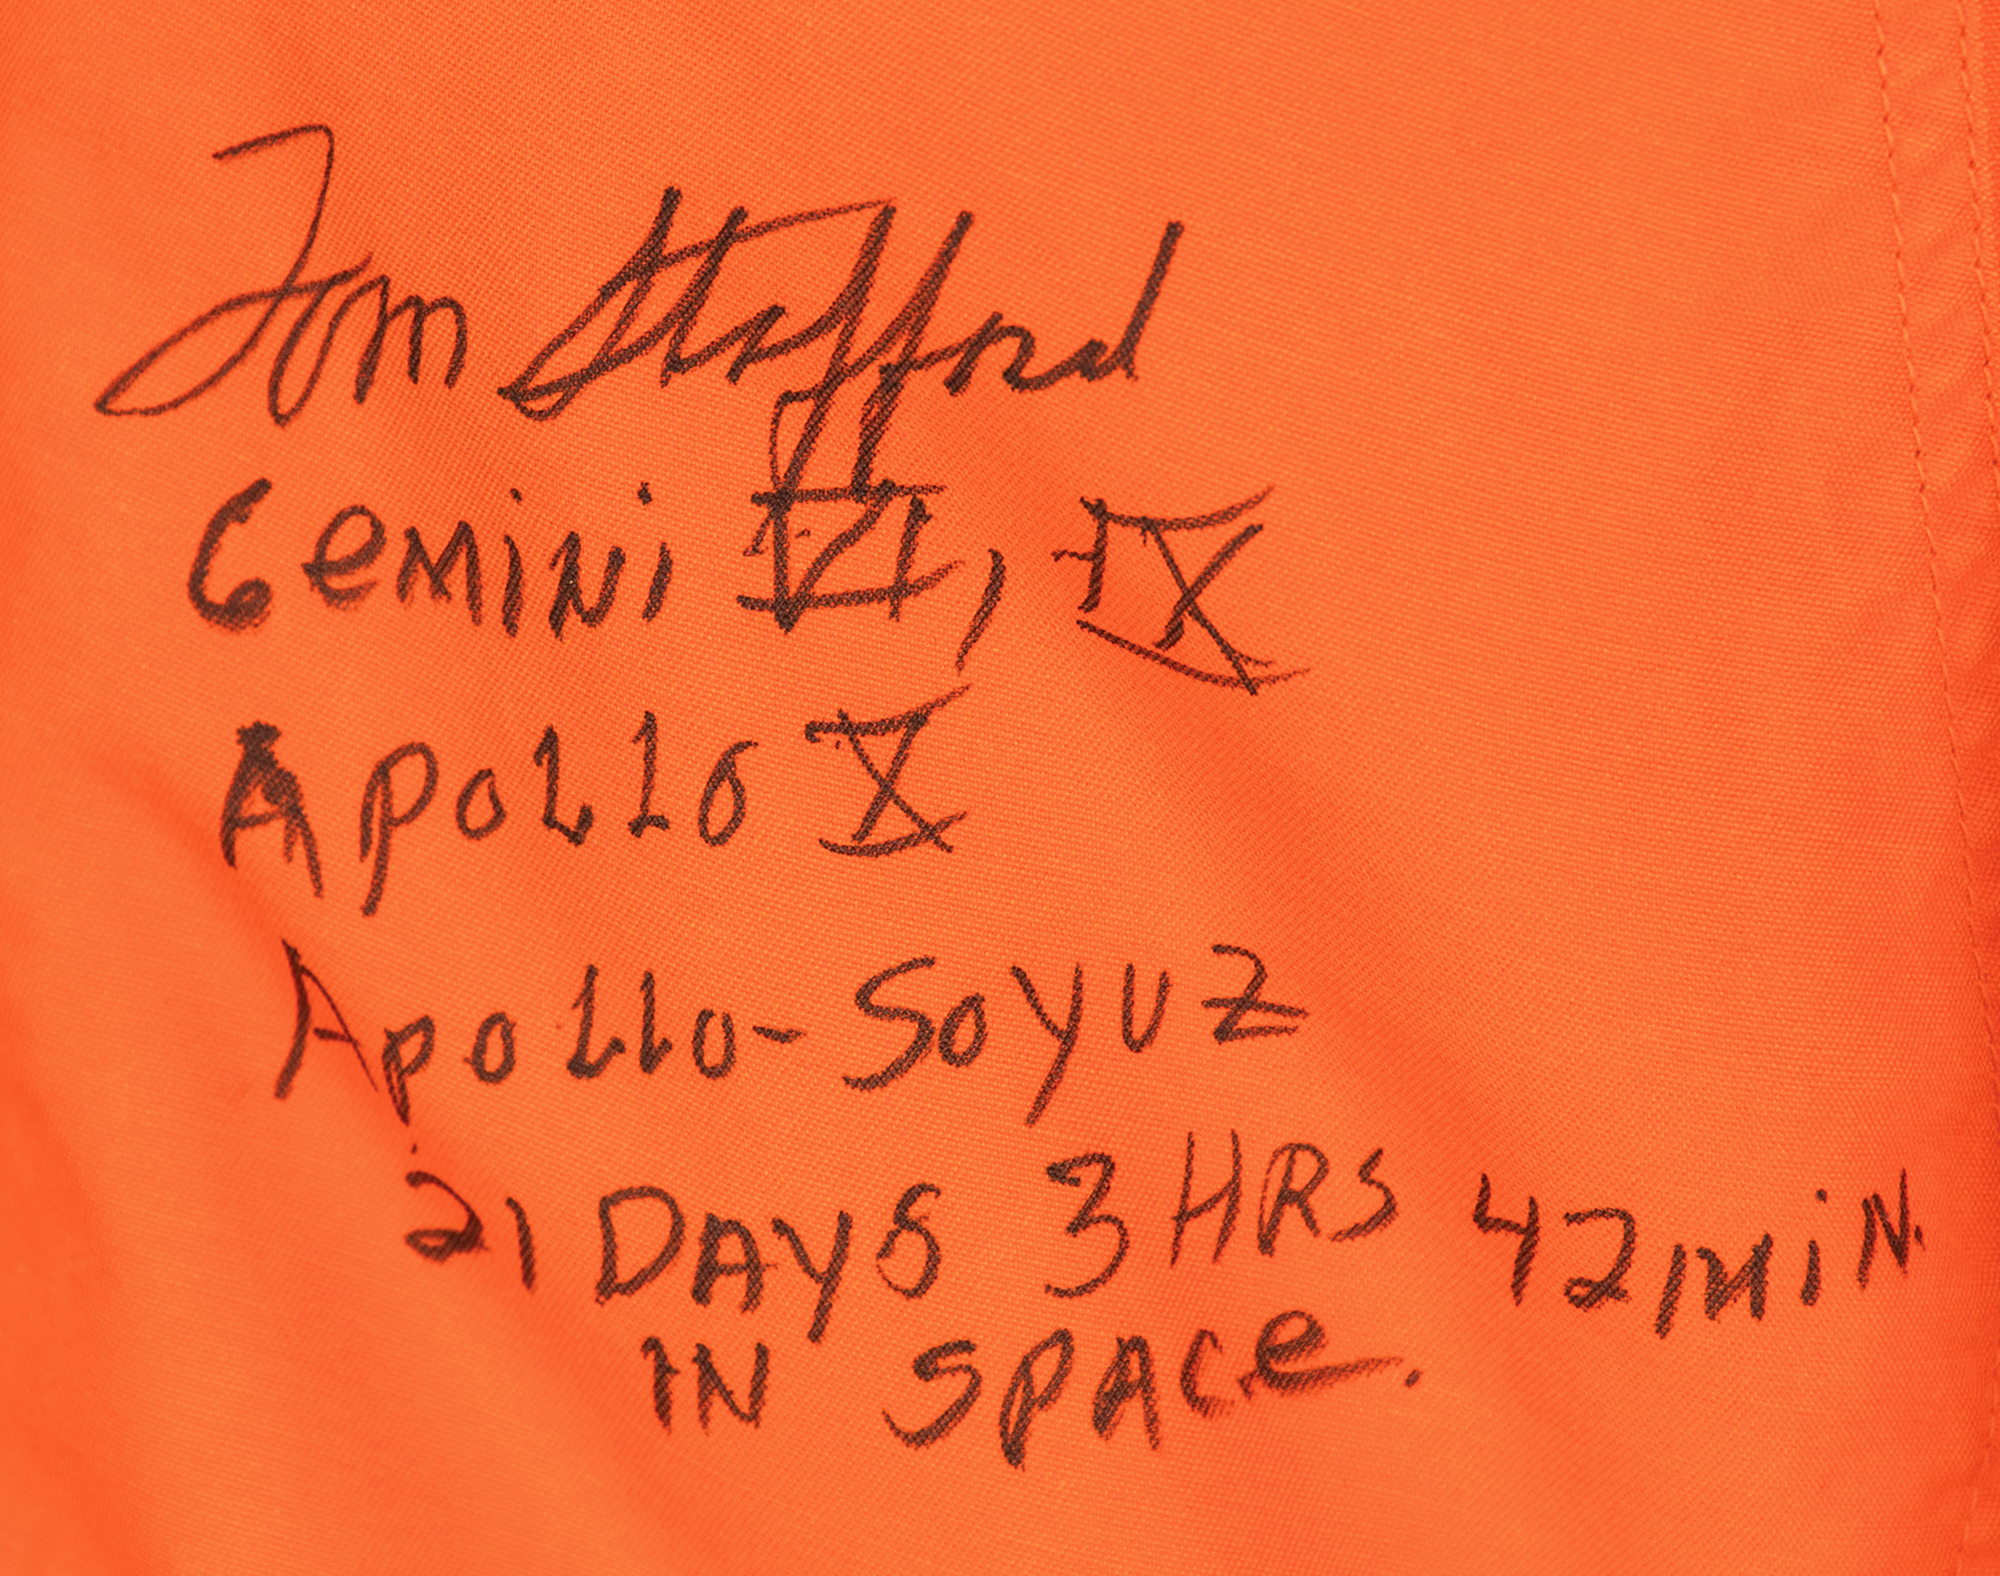 Tom Stafford
Gemini VI, IX
Apollo X
Apollo-Soyuz
21 DAYS 3 HRS 42 MiN.
IN SPACe.